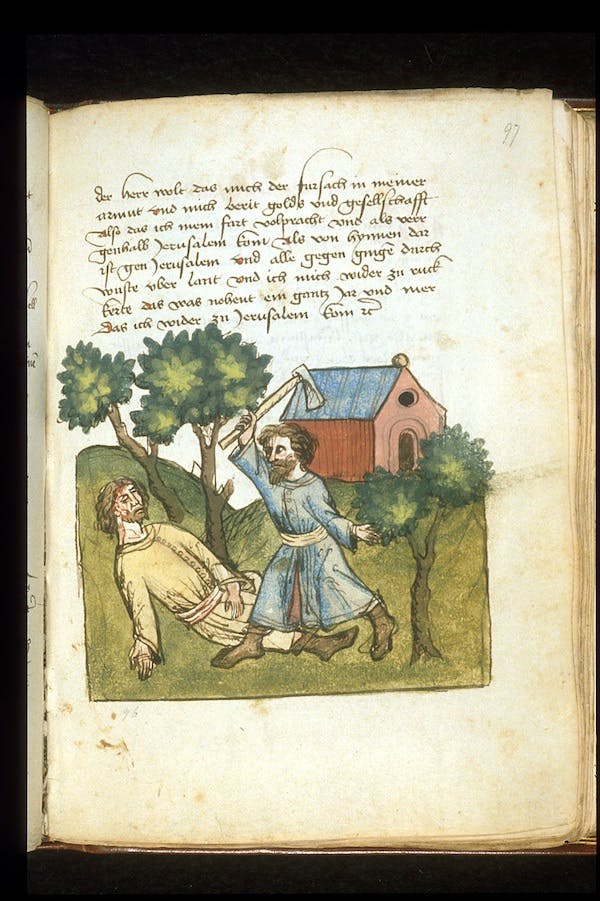 97
der herr wolt das mich der fursach in meiner
armut vnd mich berit golds vnd gesellschafft
Also das ich mein fart volpracht vnd als verr
genhalb Jerusalem kom Als von hynnen dar
ist gen Jerusalem vnd alle gegen ginge durch
wuste vber lant vnd ich mich wider zu ruck
kerte das was nohent ein gantz Jar vnd mer
Das ich wider zu Jerusalem kom rc
96